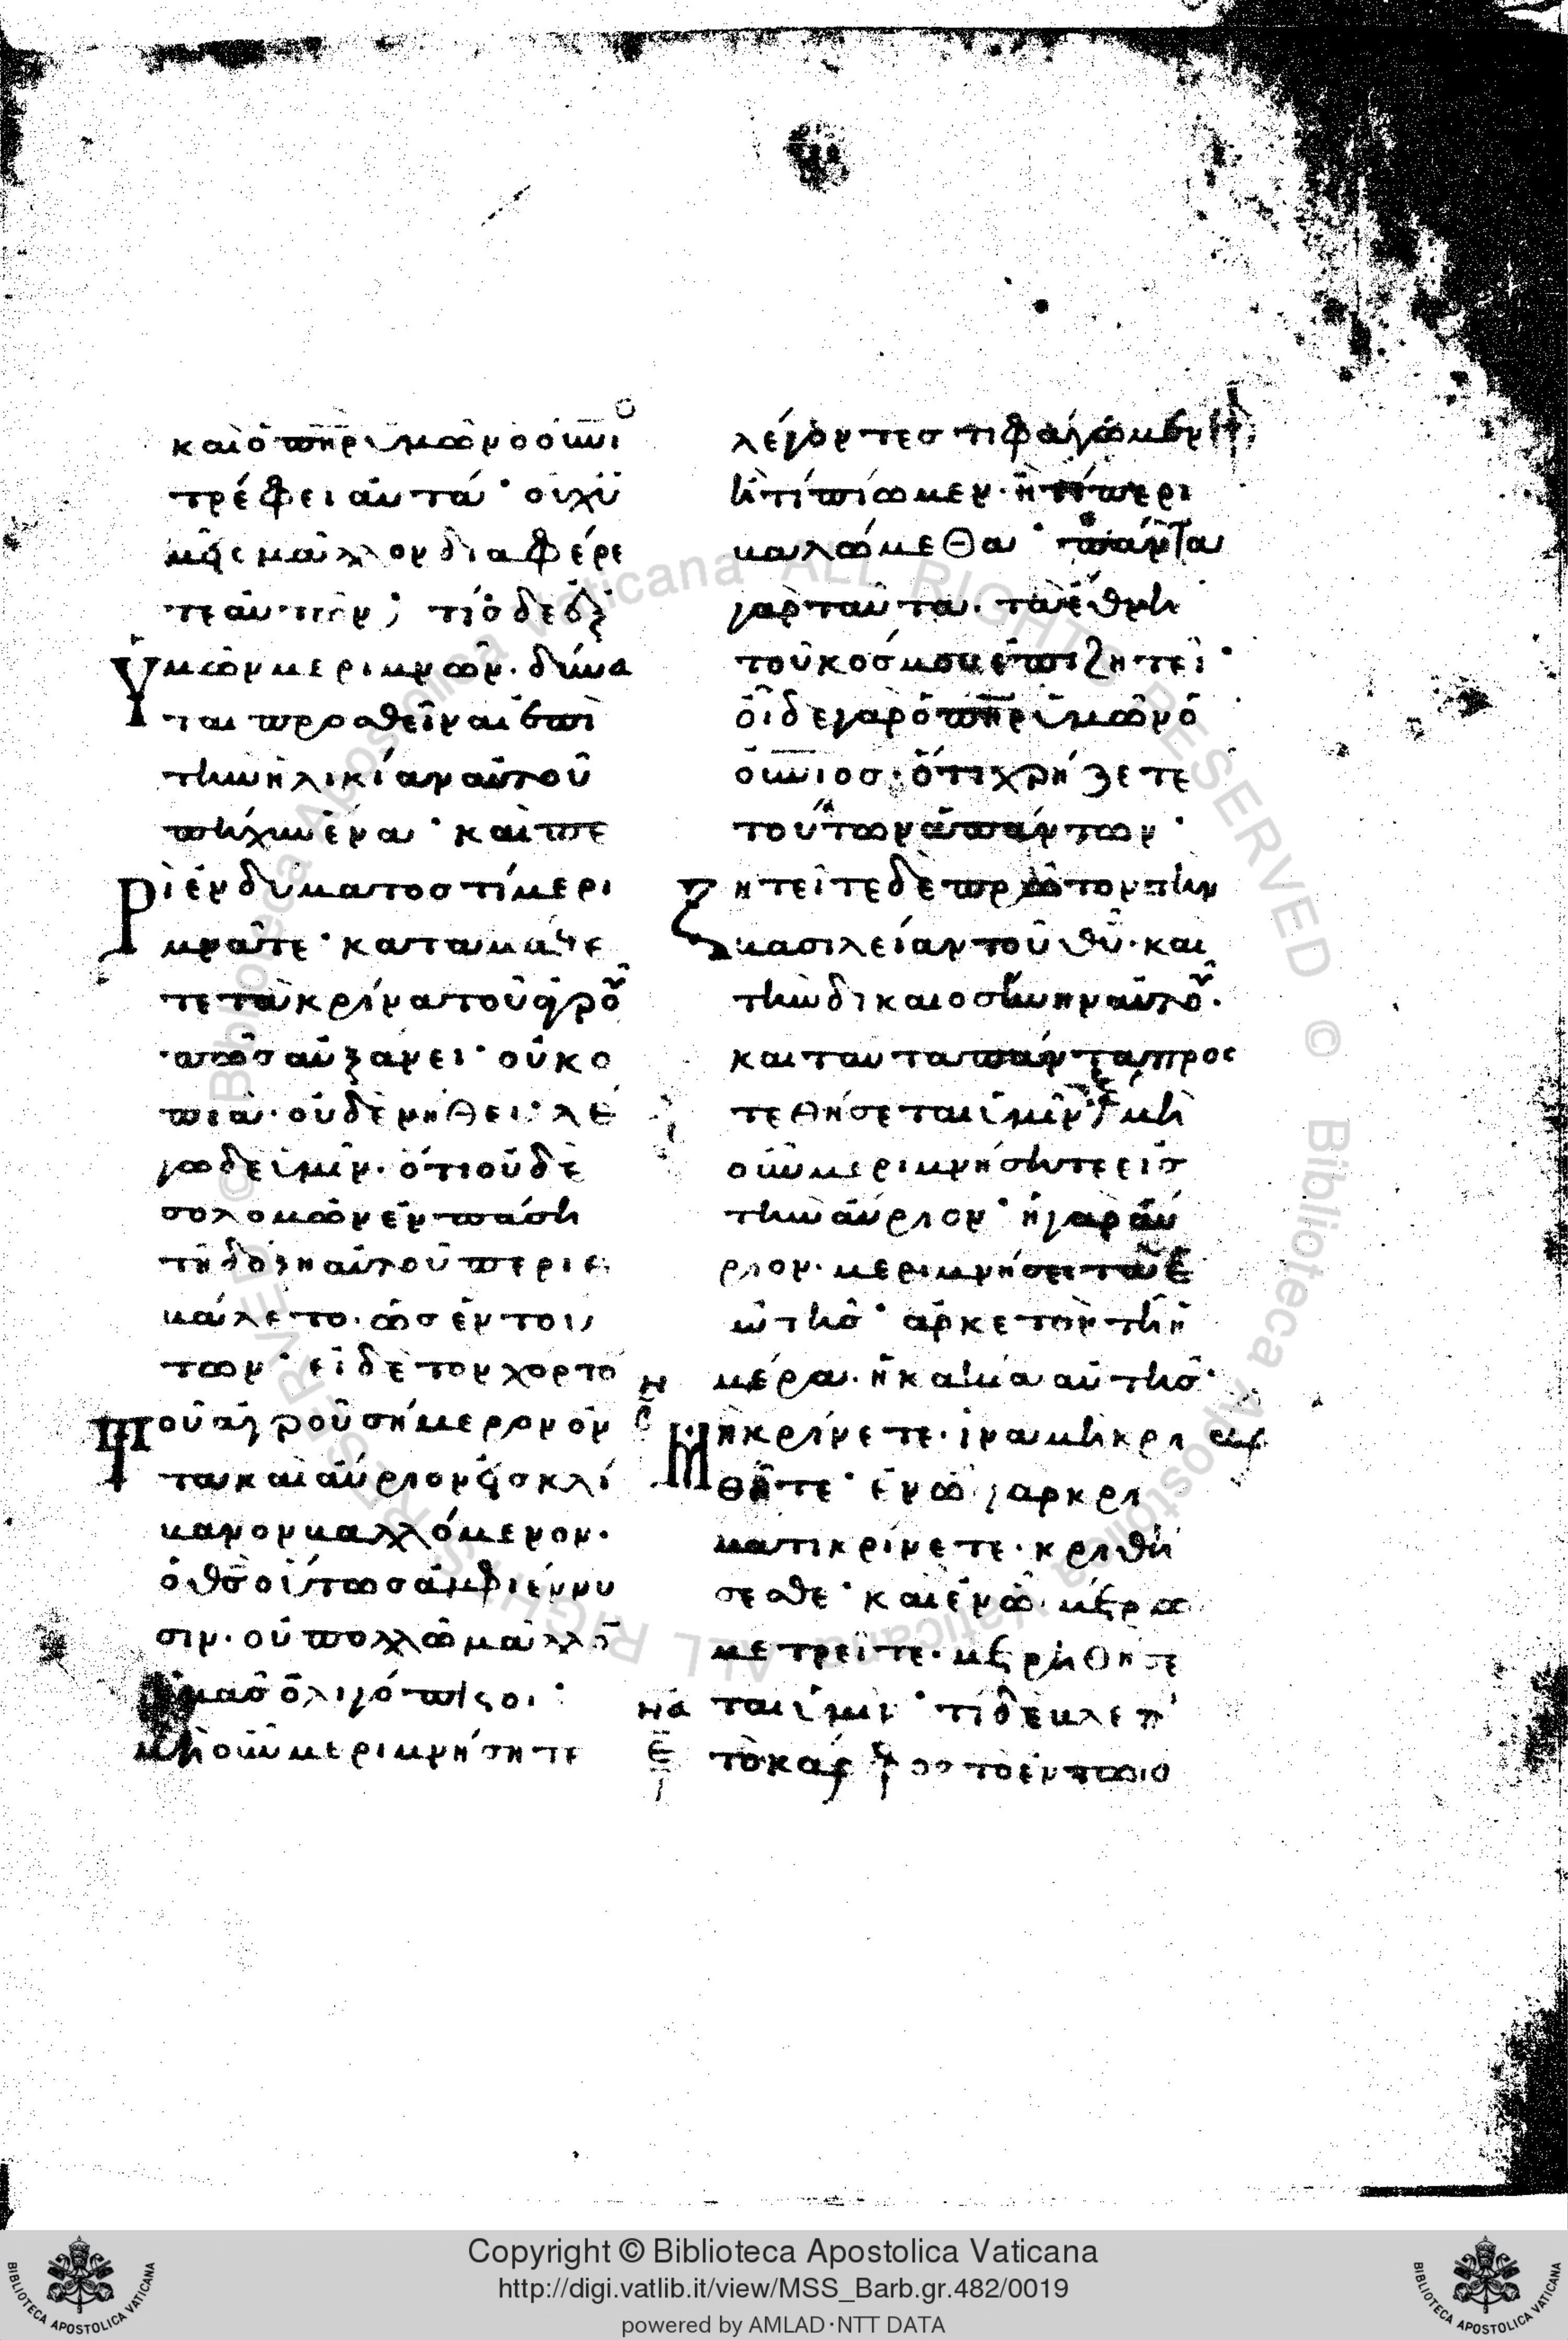 καὶ ὁ πηρ ὑμῶν ὁ οὐνι
τρέφει αὐτά· οὐχ ὑ
μεῖς μᾶλλον διαφέρε
τε αὐτῶν; τίς δὲ ἐξ
ὑμῶν μεριμνῶν· δύνα
ται προσθεῖναι ἐπὶ
τὴν ἡλικίαν αὐτοῦ
πῆχυν ἕνα· καὶ πε
ρὶ ἐνδύματος τί μερι
μνᾶτε· καταμάθε
τε τὰ κρίνα τοῦ ἀγροῦ
πῶς αὐξάνει· οὐ κο
πιᾷ· οὐδὲ νήθει· λέ
γω δὲ ὑμῖν· ὅτι οὐδὲ
σολομὼν ἐν πάσῃ
τῇ δόξῃ αὐτοῦ περιε
βάλετο· ὡς ἓν τού
των· εἰ δὲ τὸν χόρτο
τοῦ ἀγροῦ σήμερον ὄν
τα καὶ αὔριον εἰς κλί
βανον βαλλόμενον·
ὁ θς οὕτως ἀμφιέννυ
σιν· οὐ πολλῷ μᾶλλο
ὑμᾶς ὀλιγόπιστοι·
μὴ οὖν μεριμνήσητε
λέγοντες τί φάγωμεν
ἢ τί πίωμεν· ἢ τί περι
βαλώμεθα· πάντα
γὰρ ταῦτα· τὰ ἔθνη
τοῦ κόσμου ἐπιζητεῖ·
οἶδε γὰρ ὁ πηρ ὑμῶν ὁ
οὐνιος· ὅτι χρήζετε
τούτων ἁπάντων·
ζητεῖτε δὲ πρῶτον τὴν
βασιλείαν τοῦ θυ· καὶ
τὴν δικαιοσύνην αὐτοῦ·
καὶ ταῦτα πάντα προς
τεθήσεται ὑμῖν μὴ
οὖν μεριμνήσητε εἰς
τὴν αὔριον· ἡ γὰρ αὔ
ριον· μεριμνήσει τὰ ἑ
αυτῆς· ἀρκετὸν τῇ ἡ
μέρᾳ· ἡ κακία αὐτῆς·
Μὴ κρίνετε· ἵνα μὴ κρι
θῆτε· ἐν ᾧ γὰρ κρί
ματι κρίνετε· κριθή
σεσθε· καὶ ἐν ᾧ μέτρω
μετρεῖτε· μετρηθήσε
ται ὑμῖν· τί δὲ βλέπ
τὸ κάρφος τὸ ἐν τῷ ο
Copyright © Biblioteca Apostolica Vaticana
http://digi.vatlib.it/view/MSS_Barb.gr.482/0019
powered by AMLAD·NTT DATA